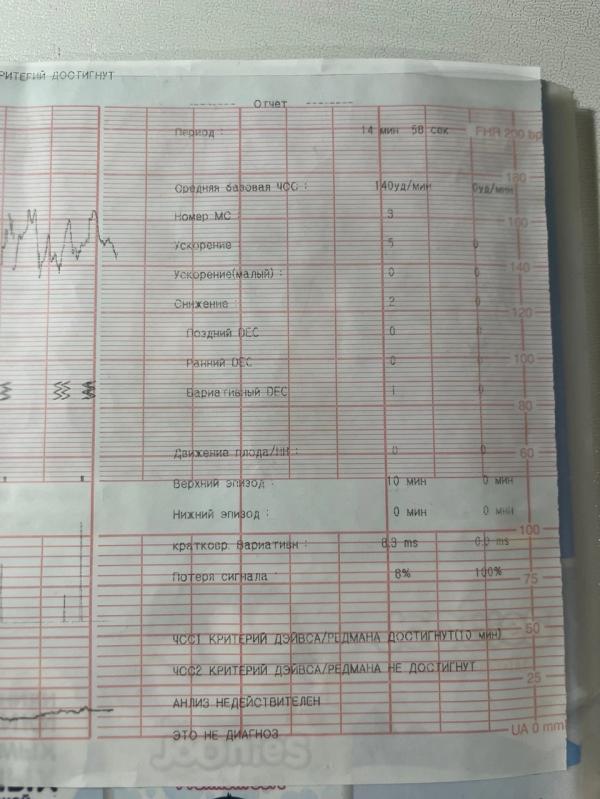 РИТЕРИЙ ДОСТИГНУТ
-------- Отчет --------
Период : 14 мин 58 сек FHR 200 bp
180
Средняя базовая ЧСС : 140уд/мин 0уд/мин
Номер МС : 3
160
Ускорение : 5 0
140
Ускорение(малый) : 0 0
Снижение : 2 0
120
Поздний DEC 0
100
Ранний DEC 0
Вариативный DEC 1 0
80
Движение плода/ : 0 0
60
Верхний эпизод : 10 мин 0 мин
Нижний эпизод : 0 мин 0 мин
100
кратковр. Вариативн : ms ms
Потеря сигнала : 100%
75
ЧСС1 КРИТЕРИЙ ДЭЙВСА/РЕДМАНА ДОСТИГНУТ(10 мин)
50
ЧСС2 КРИТЕРИЙ ДЭЙВСА/РЕДМАНА НЕ ДОСТИГНУТ
25
АНЛИЗ НЕДЕЙСТВИТЕЛЕН
ЭТО НЕ ДИАГНОЗ
UA 0 mm